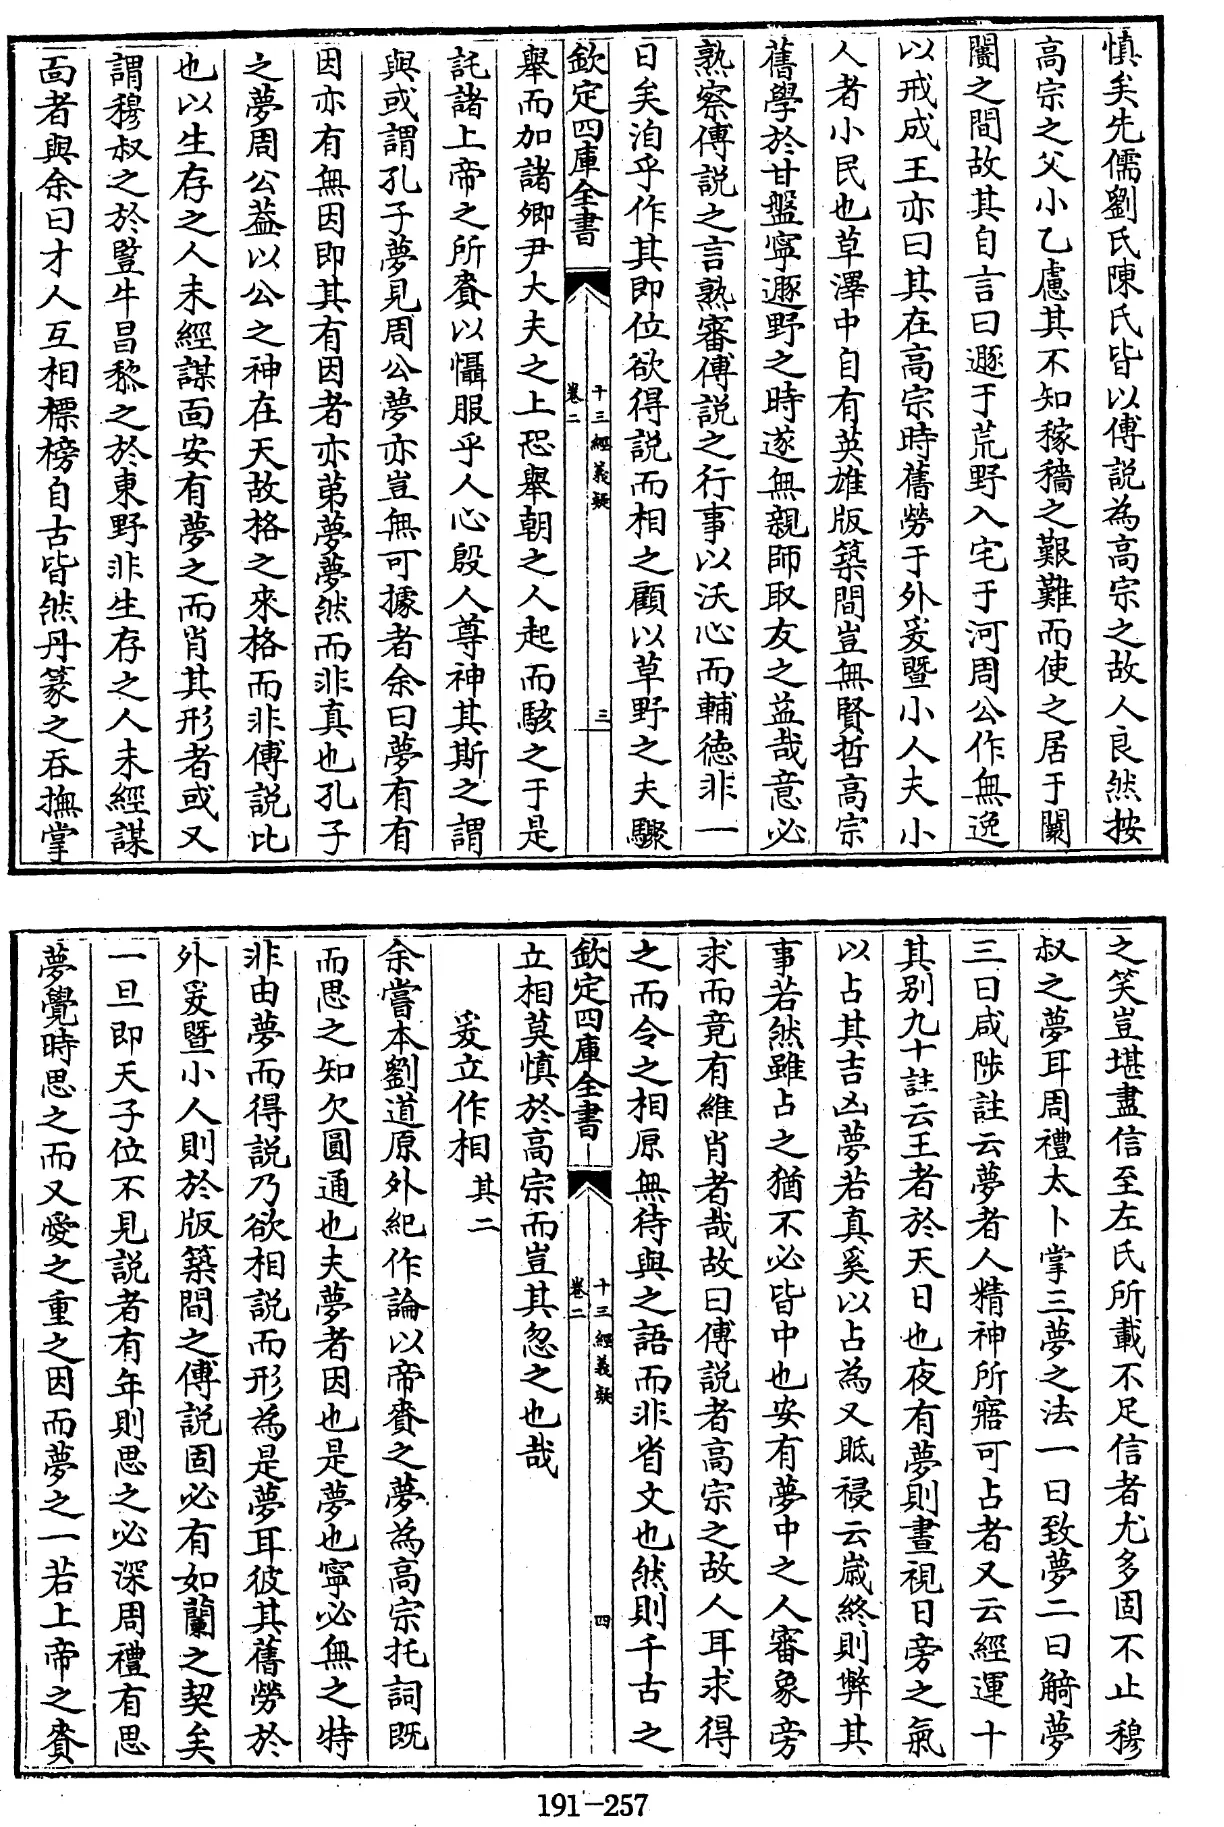 慎矣先儒劉氏陳氏皆以傅説為高宗之故人良然按
高宗之父小乙慮其不知稼穡之艱難而使之居于闤
闠之間故其自言曰遯于荒野入宅于河周公作無逸
以戒成王亦曰其在高宗時舊勞于外爰曁小人夫小
人者小民也草澤中自有英雄版築間豈無賢哲高宗
舊學於甘盤寜遯野之時遂無親師取友之益哉意必
熟察傅説之言熟審傅説之行事以沃心而輔徳非一
日矣洎乎作其即位欲得説而相之顧以草野之夫驟
欽定四庫全書
十三經義疑
卷二
三
舉而加諸卿尹大夫之上恐舉朝之人起而駭之于是
託諸上帝之所賚以懾服乎人心殷人尊神其斯之謂
與或謂孔子夢見周公夢亦豈無可據者余曰夢有有
因亦有無因即其有因者亦第夢夢然而非真也孔子
之夢周公葢以公之神在天故格之來格而非傅説比
也以生存之人未經謀面安有夢之而肖其形者或又
謂穆叔之於豎牛昌黎之於東野非生存之人未經謀
面者與余曰才人互相標榜自古皆然丹篆之吞撫掌
之笑豈堪盡信至左氏所載不足信者尤多固不止穆
叔之夢耳周禮太卜掌三夢之法一曰致夢二曰觭夢
三曰咸陟註云夢者人精神所寤可占者又云經運十
其别九十註云王者於天日也夜有夢則晝視日旁之氣
以占其吉凶夢若真奚以占為又眂祲云嵗終則弊其
事若然雖占之猶不必皆中也安有夢中之人審象旁
求而竟有維肖者哉故曰傅説者高宗之故人耳求得
之而令之相原無待與之語而非省文也然則千古之
欽定四庫全書
十三經義疑
卷二
四
立相莫慎於高宗而豈其忽之也哉
爰立作相 其二
余嘗本劉道原外紀作論以帝賚之夢為高宗托詞既
而思之知欠圓通也夫夢者因也是夢也寜必無之特
非由夢而得説乃欲相説而形為是夢耳彼其舊勞於
外爰曁小人則於版築間之傅説固必有如蘭之契矣
一旦即天子位不見説者有年則思之必深周禮有思
夢覺時思之而又愛之重之因而夢之一若上帝之賚
191-257